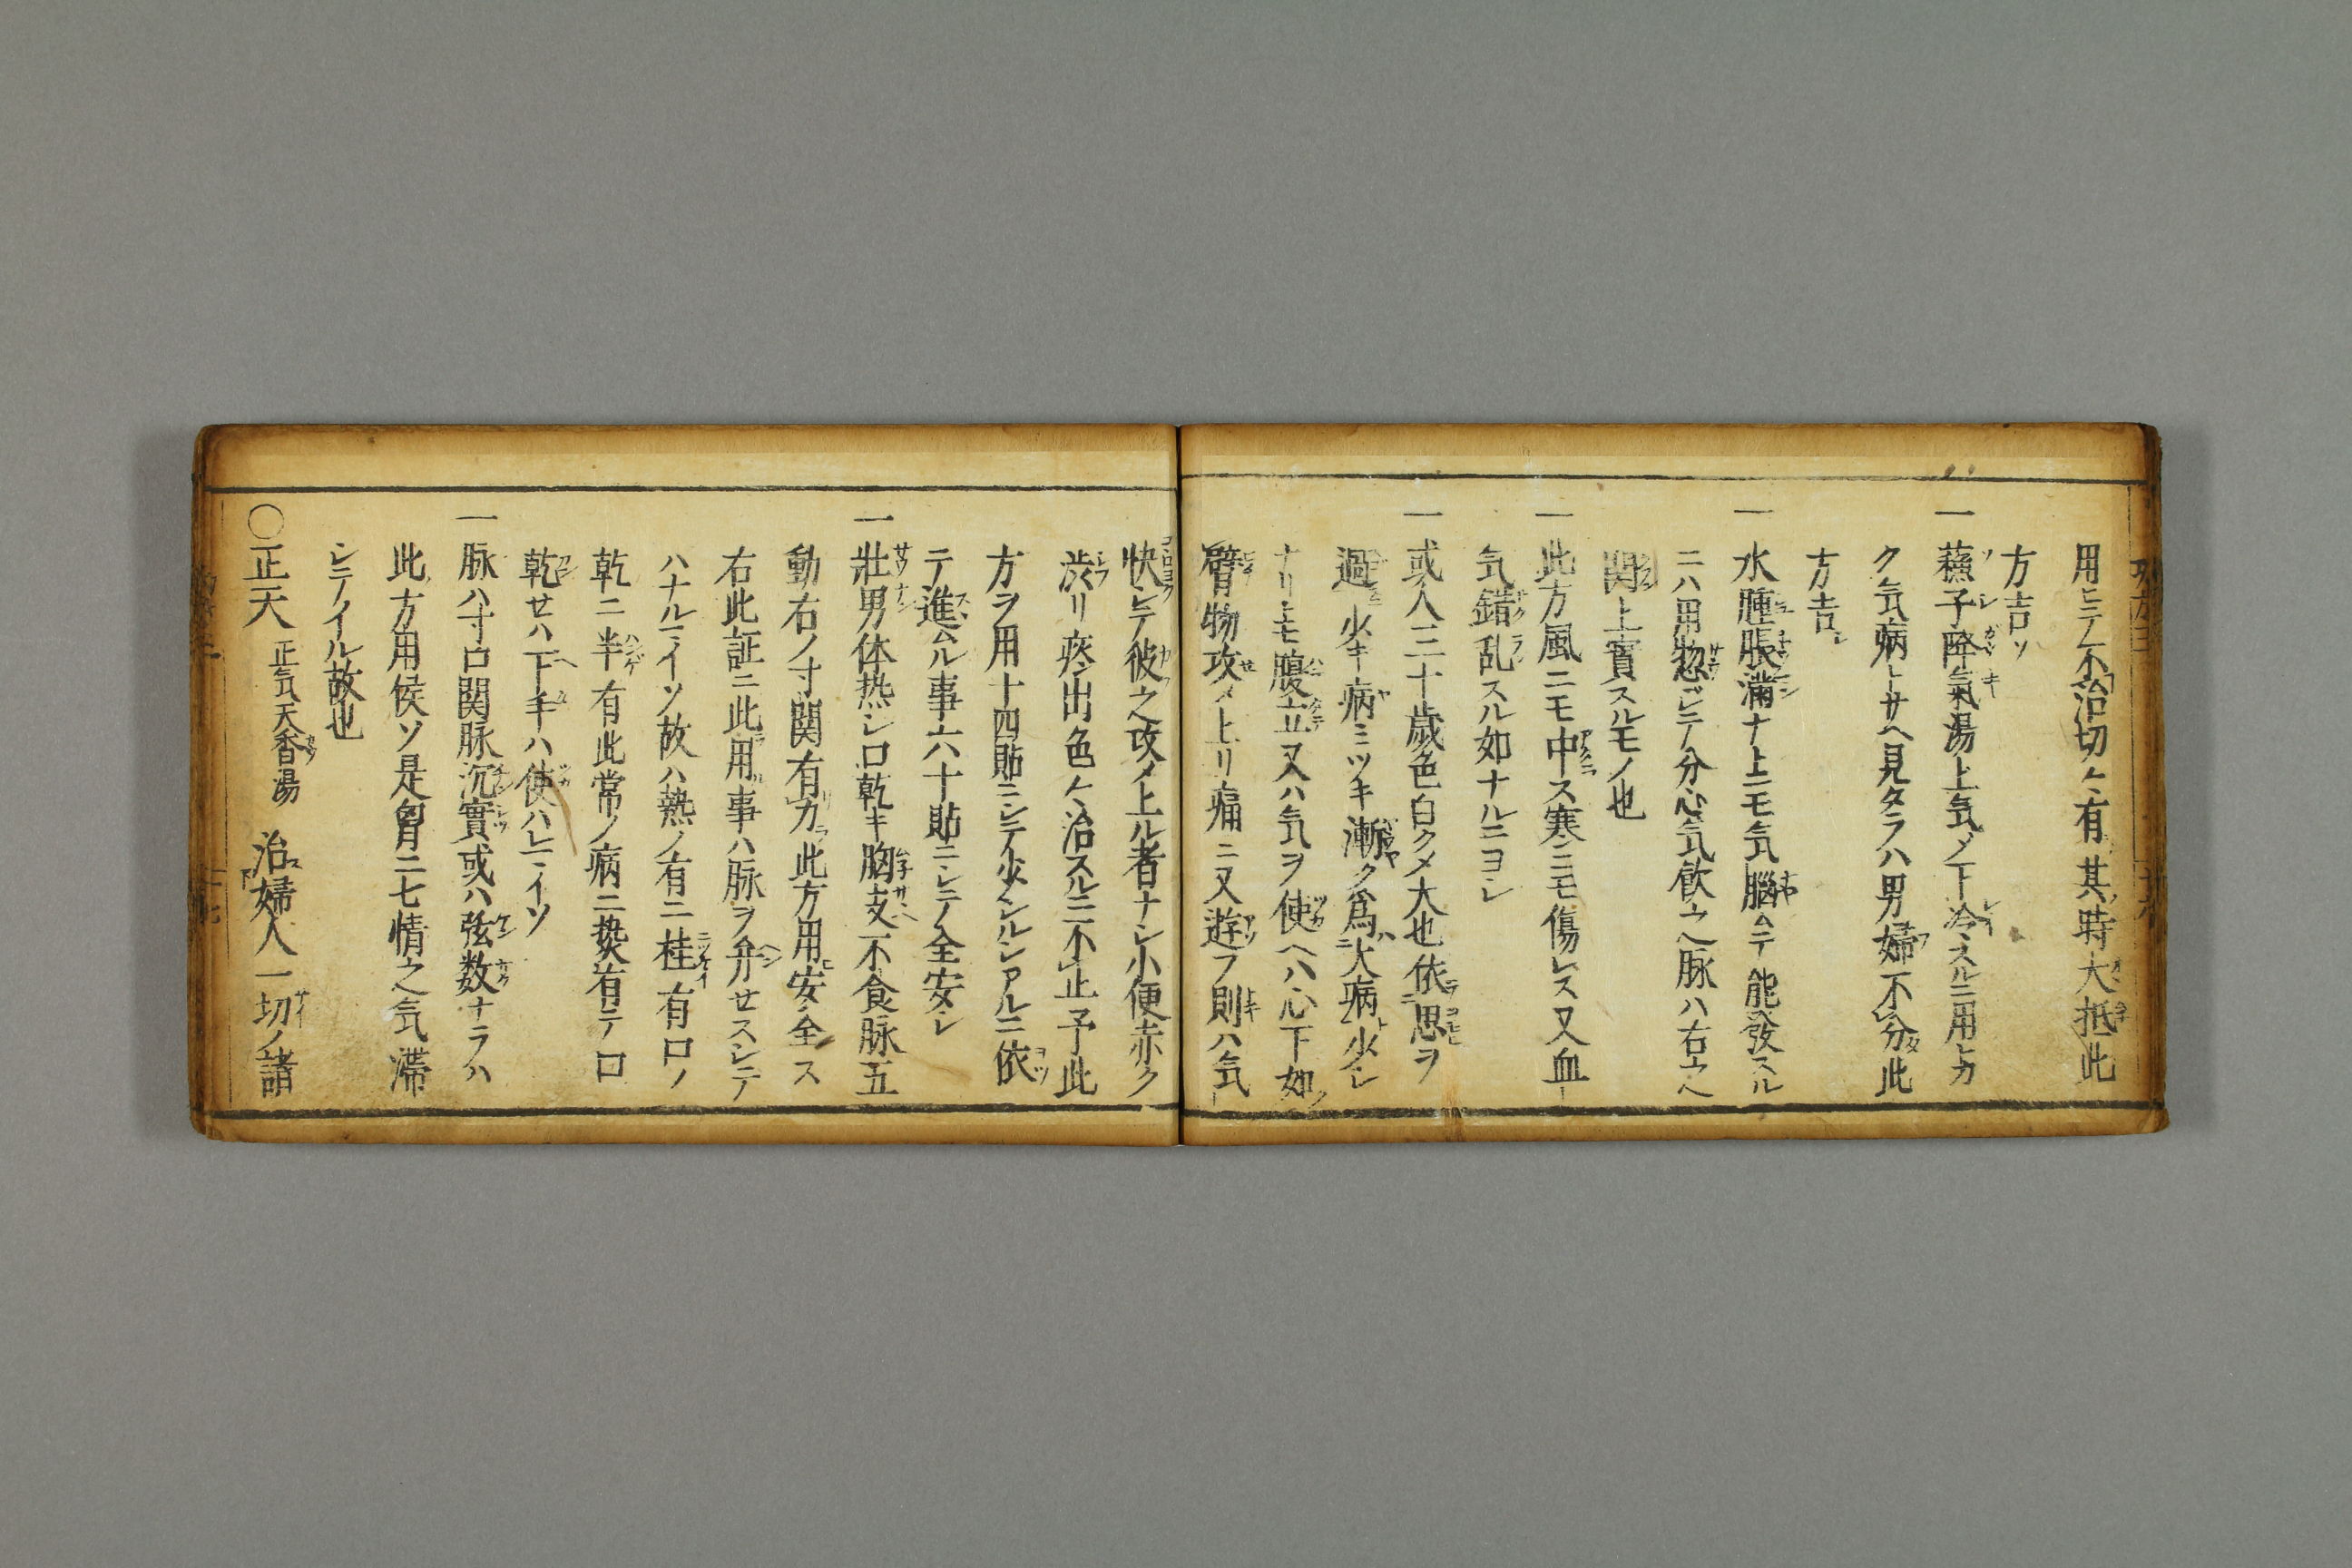 用ヒテ不治切々有其時大抵此
方吉ソ
一蘓子降氣湯上気メ下冷スルニ用ヒカ
ク気病トサヘ見タラハ男婦不分此
方吉シ
一水腫脹滿ナトニモ気腦ムテ能發スル
ニハ用惣ジテ分心気飲ウヘ脉ハ右ウヘ
関上實スルモノ也
一此方風ニモ中ス寒ニモ傷レス又血
気錯乱スル如ナルニヨシ
一或人三十歳色白クメ大也依思ヲ
過少キ病ミツキ漸ク爲大病少シ
ナリトモ腹立又ハ気ヲ使ヘハ心下如
臂物攻メ上リ痛ニ又遊フ則ハ気
快シテ彼之攻メ上ル者ナシ小便赤ク
渋リ痰出色々治スルニ不止予此
方ヲ用十四貼ニシテ少シルシアルニ依
テ進ムル事六十貼ニシテ全安シ
一壯男体热シ口乾キ胸支不食脉五
動右ノ寸関有力此方用安全ス
右此証ニ此用事ハ脉ヲ弁セスシテ
ハナルマイソ故ハ熱ノ有ニ桂有口ノ
乾ニ半有此常ノ病ニ热有テ口
乾セハ下手ハ使ハレマイソ
一脉ハ寸口関脉沉實或ハ弦数ナラハ
此方用侯ソ是胃ニ七情之気滞
シテイル故也
〇正天 正気天香湯 治婦人一切ノ諸